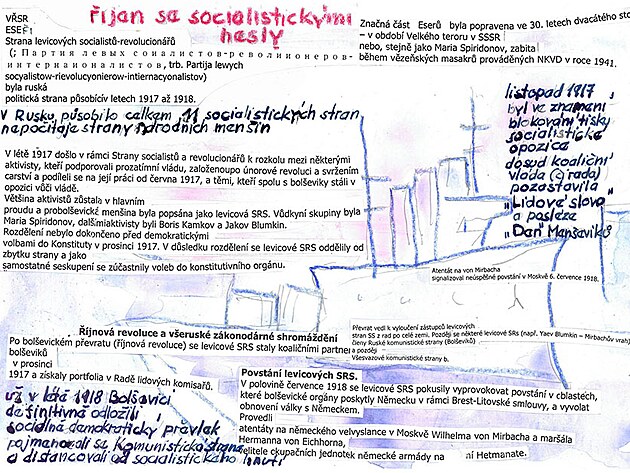 VŘSR
říjen se socialistickými
hesly
ESEŘI
Strana levicových socialistů-revolucionářů
( П а р т и я л е в ы х с о ц и а л и с т о в - р е в о л ю ц и о н е р о в -
и н т е р н а ц и о н а л и с т о в ), trb. Partija lewych
socyalistow-riewolucyonierow-internacyonalistov)
byla ruská
politická strana působícív letech 1917 až 1918.
V Rusku působilo celkem 11 socialistických stran
nepočítaje strany národních menšin
Značná část Eserů byla popravena ve 30. letech dvacátého sto
– v období Velkého teroru v SSSR
nebo, stejně jako Maria Spiridonov, zabita
během vězeňských masakrů prováděných NKVD v roce 1941.
listopad 1917
byl ve znamení
blokování tisku
socialistické
opozice
dosud koaliční
vláda
pozastavila
"Lidové slovo
a posléze
"Deň" Menševiků
V létě 1917 došlo v rámci Strany socialistů a revolucionářů k rozkolu mezi některými
aktivisty, kteří podporovali prozatímní vládu, založenoupo únorové revoluci a svržením
carství a podíleli se na její práci od června 1917, a těmi, kteří spolu s bolševiky stáli v
opozici vůči vládě.
Většina aktivistů zůstala v hlavním
proudu a probolševická menšina byla popsána jako levicová SRS. Vůdkyní skupiny byla
Maria Spiridonov, dalšímiaktivisty byli Boris Kamkov a Jakov Blumkin.
Rozdělení nebylo dokončeno před demokratickými
volbami do Konstituty v prosinci 1917. V důsledku rozdělení se levicové SRS oddělily od
zbytku strany a jako
samostatné seskupení se zúčastnily voleb do konstitučního orgánu.
Atentát na von Mirbacha
signalizoval neúspěšné povstání v Moskvě 6. července 1918.
Říjnová revoluce a všeruské zákonodárné shromáždění
Po bolševickém převratu (říjnová revoluce) se levicové SRS staly koaličními partnery
bolševiků
v prosinci
1917 a získaly portfolia v Radě lidových komisařů.
Převrat vedl k vyloučení zástupců levicových
stran SS z rad po celé zemi. Později se některé levicové SRS (např. Yaev Blumkin – Mirbachův vrah)
členy Ruské komunistické strany (Bolševiků)
a později
Všesvazové komunistické strany b.
už v létě 1918 Bolševici
definitivně odložili
sociálně demokratický převlek
pojmenovali se Komunistická strana
a distancovali od socialistického hnutí
Povstání levicových SRS.
V polovině července 1918 se levicové SRS pokusily vyprovokovat povstání v oblastech,
které bolševické orgány poskytly Německu v rámci Brest-Litovské smlouvy, a vyvolat
obnovení války s Německem.
Provedli
atentáty na německého velvyslance v Moskvě Wilhelma von Mirbacha a maršála
Hermanna von Eichhorna,
velitele okupačních jednotek německé armády na ní Hetmanate.